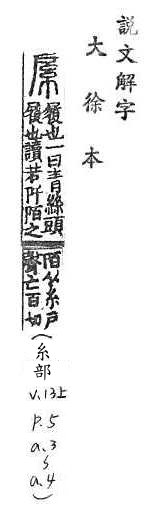 説文解字
大徐本
履也一曰青絲頭
履也讀若阡陌之
陌从糸戶
聲亡百切
(糸部 v.13上 p.5 a.3 ~ a.4)